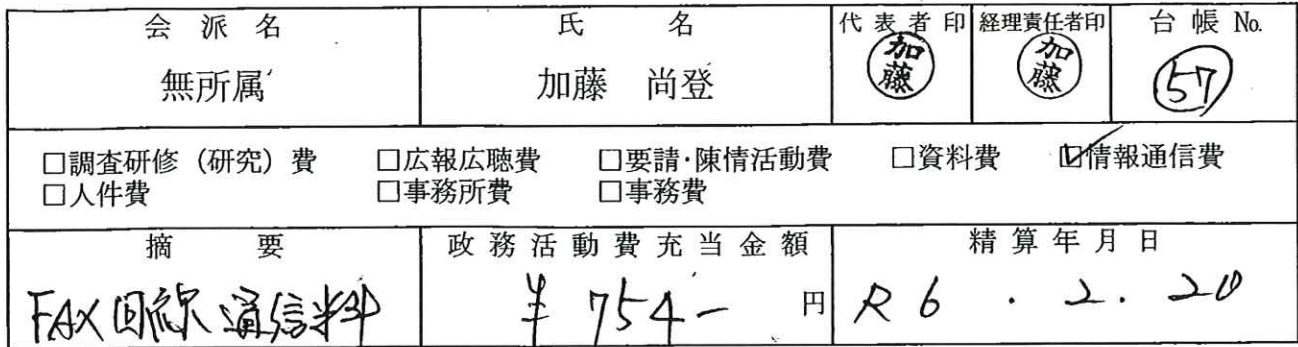 会派名 氏名 代表者印 経理責任者印 台帳 No.
無所属 加藤 尚登 加藤 加藤 57
□調査研修（研究）費 □広報広聴費 □要請・陳情活動費 □資料費 ☑情報通信費
□人件費 □事務所費 □事務費
摘要 政務活動費充当金額 精算年月日
FAX回線通信料 ¥754- 円 R6.2.20